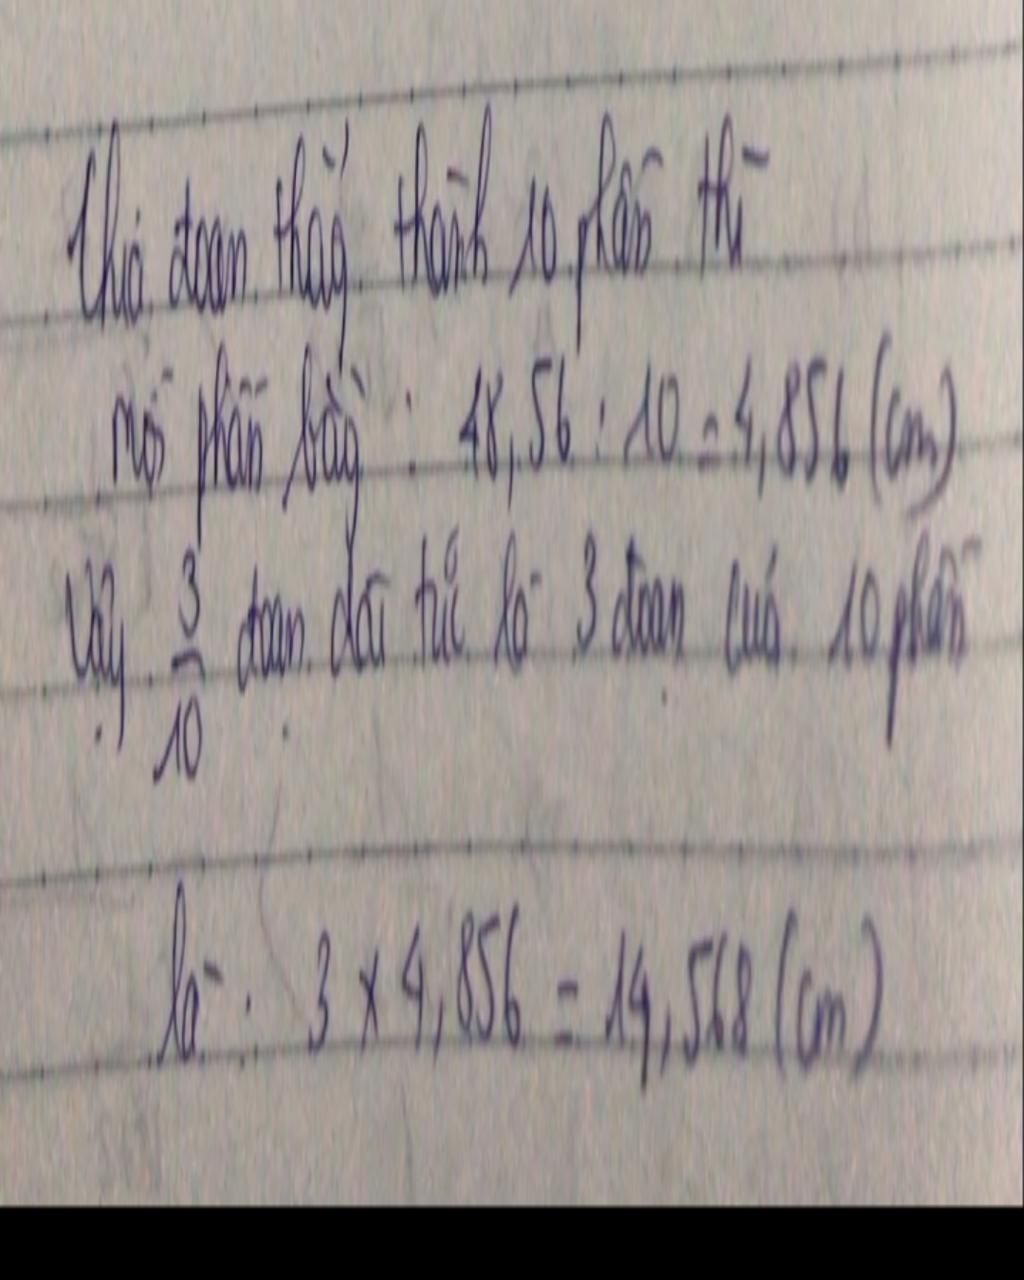 Chia đoạn thẳg thành 10 phần thì
mỗi phần bằg : 48,56 : 10 = 4,856 (cm)
Vậy 3/10 đoạn dài tức là 3 đoạn của 10 phần
là : 3 x 4,856 = 14,568 (cm)